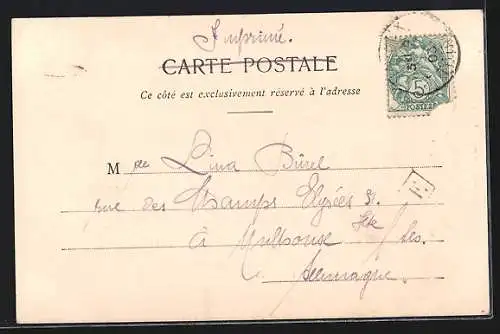 Imprimé.
CARTE POSTALE
Ce côté est exclusivement réservé à l'adresse
5c
POSTES
Melle Lina Bürel
rue des Champs Elysées 31
à Mulhouse
Allemagne.